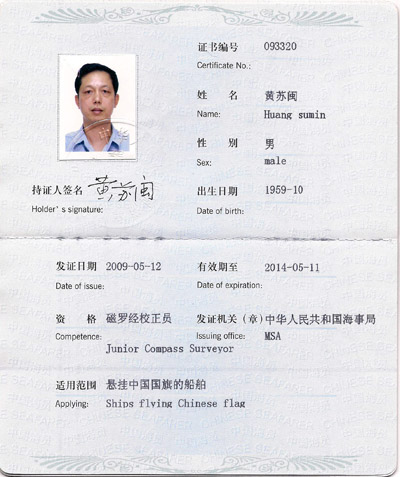 证书编号 093320
Certificate No.:
姓 名 黄苏闽
Name: Huang sumin
性 别 男
Sex: male
持证人签名 黄苏闽
Holder's signature:
出生日期 1959-10
Date of birth:
发证日期 2009-05-12 有效期至 2014-05-11
Date of issue: Date of expiration:
资 格 磁罗经校正员 发证机关 (章) 中华人民共和国海事局
Competence: Issuing office: MSA
Junior Compass Surveyor
适用范围 悬挂中国国旗的船舶
Applying: Ships flying Chinese flag